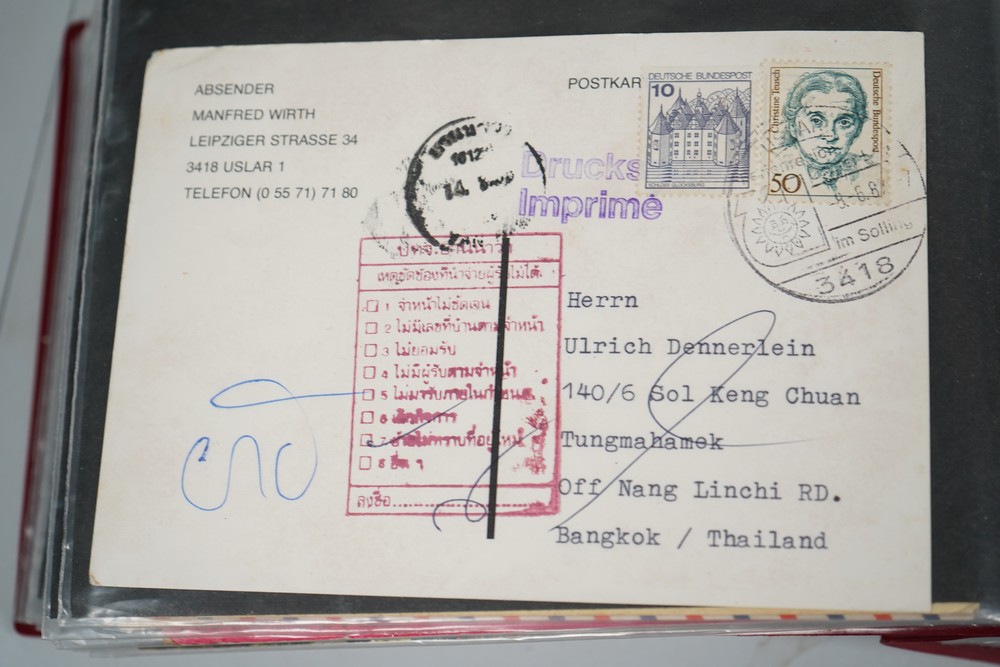 ABSENDER
MANFRED WIRTH
LEIPZIGER STRASSE 34
3418 USLAR 1
TELEFON (0 55 71) 71 80
POSTKAR
DEUTSCHE BUNDESPOST
10
SCHLOSS GLÜCKSBURG
Christine Teusch
Deutsche Bundespost
50
Drucks
Imprimé
im Solling
3418
เหตุขัดข้องที่นำจ่ายผู้รับไม่ได้
1 จ่าหน้าไม่ชัดเจน
2 ไม่มีเลขที่บ้านตามจ่าหน้า
3 ไม่ยอมรับ
4 ไม่มีผู้รับตามจ่าหน้า
5 ไม่มารับภายในกำหนด
6 เลิกกิจการ
7 ย้ายไม่ทราบที่อยู่ใหม่
8 อื่น ๆ
ลงชื่อ....................
Herrn
Ulrich Dennerlein
140/6 Sol Keng Chuan
Tungmahamek
Off Nang Linchi RD.
Bangkok / Thailand